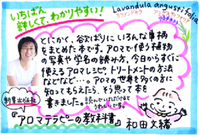 いちばん
詳しくて、わかりやすい!
Lavandula angustifolia
とにかく、谷なりに いろんな事柄
をまとめた本です。アロマで使う植物
の写真や学名の読み方、今日からすぐに
使えるアロマレシピ、トリートメントの方法
などなど…。アロマの世界を多くの方に
知ってもらえたら、そう思って本を
書きました。
『アロマテラピーの教科書』和田文緒